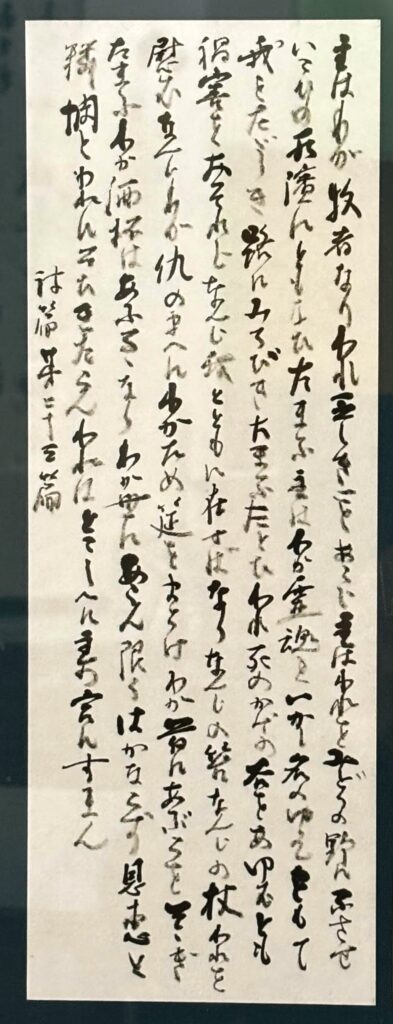 主はわが牧者なりわれ乏しきことあらじ主はわれをみどりの野にふさせ
いこひの水濱にともなひたまふ主はわが霊魂をいかし名のゆゑをもて
我をたゞしき路にみちびきたまふたとひわれ死のかげの谷をあゆむとも
禍害をおそれじなんじ我とともに在せばなりなんじの笞なんじの杖われを
慰むなんじわが仇のまへにわがため筵をまうけわが首にあぶらをそゝぎ
たまふわが酒杯はあふるゝなりわが世にあらん限りはかならず恩恵と
憐憫とわれにそひきたらんわれはとこしへに主の宮にすまん
詩篇第二十三篇